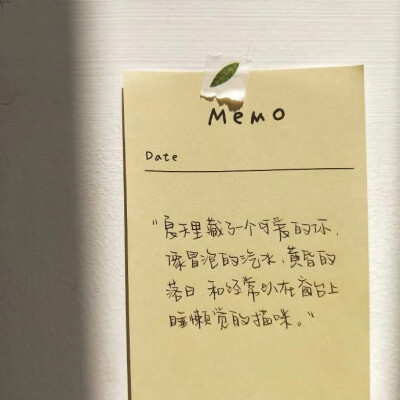 Memo
Date
“夏天里藏了一个可爱的你,
像冒泡的汽水、黄昏的
落日 和经常趴在窗台上
睡懒觉的猫咪。”